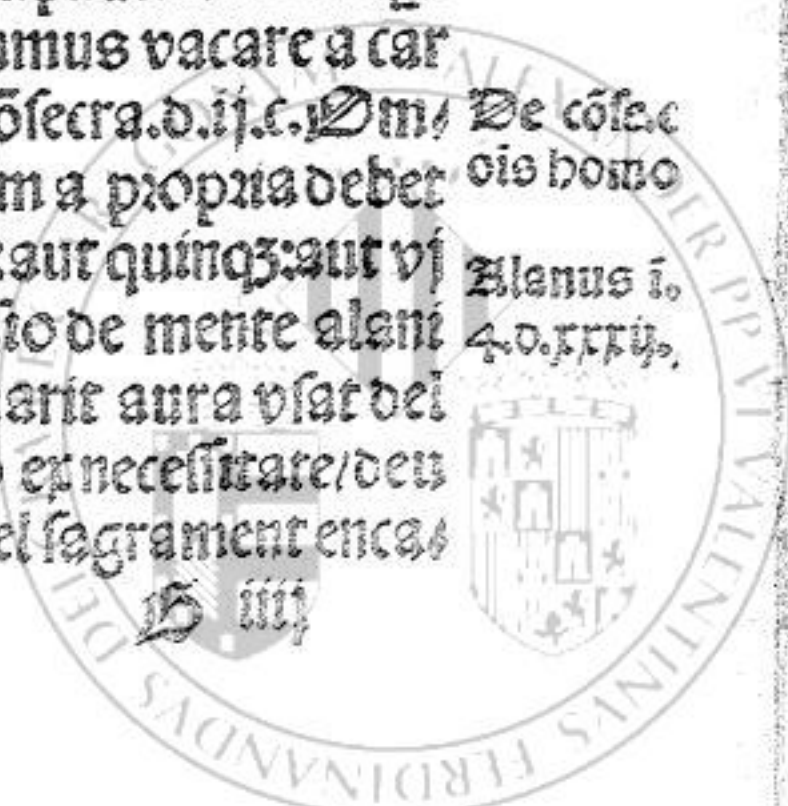 umus vacare a car
ōsecra.d.ij.c. Om⸗
m a propria debet
aut quinqʒ:aut vj
sio de mente alani
arit aura vsat del
ex necessitate/deu
el sagrament encas⸗
iiij
De cōse.c
ois homo
Alanus ī.
4.d.xxxij.